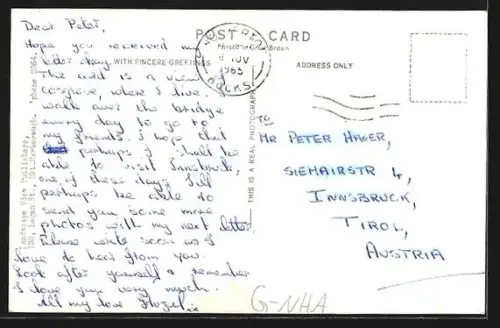 Dear Peter,
Hope you received my
letter okay.
The card is a view of
Cosgrove, where I live. I
walk over the bridge
every day to go to
my friends. I hope that
perhaps I shall be
able to visit Innsbruck,
one of these days. I'll
perhaps be able to
send you some more
photos with my next letter.
Please write soon as I
love to hear from you.
Look after yourself & remember
I love you very much.
All my love
POST CARD
Printed in Great Britain
WITH SINCERE GREETINGS
ADDRESS ONLY
NOV
1965
BUCKS
THIS IS A REAL PHOTOGRAPH
Landscape View Publishers,
Mkt. Harborough.
TO
MR PETER HAGER,
SIEMAIRSTR 4,
INNSBRUCK,
TIROL,
AUSTRIA
G-NHA